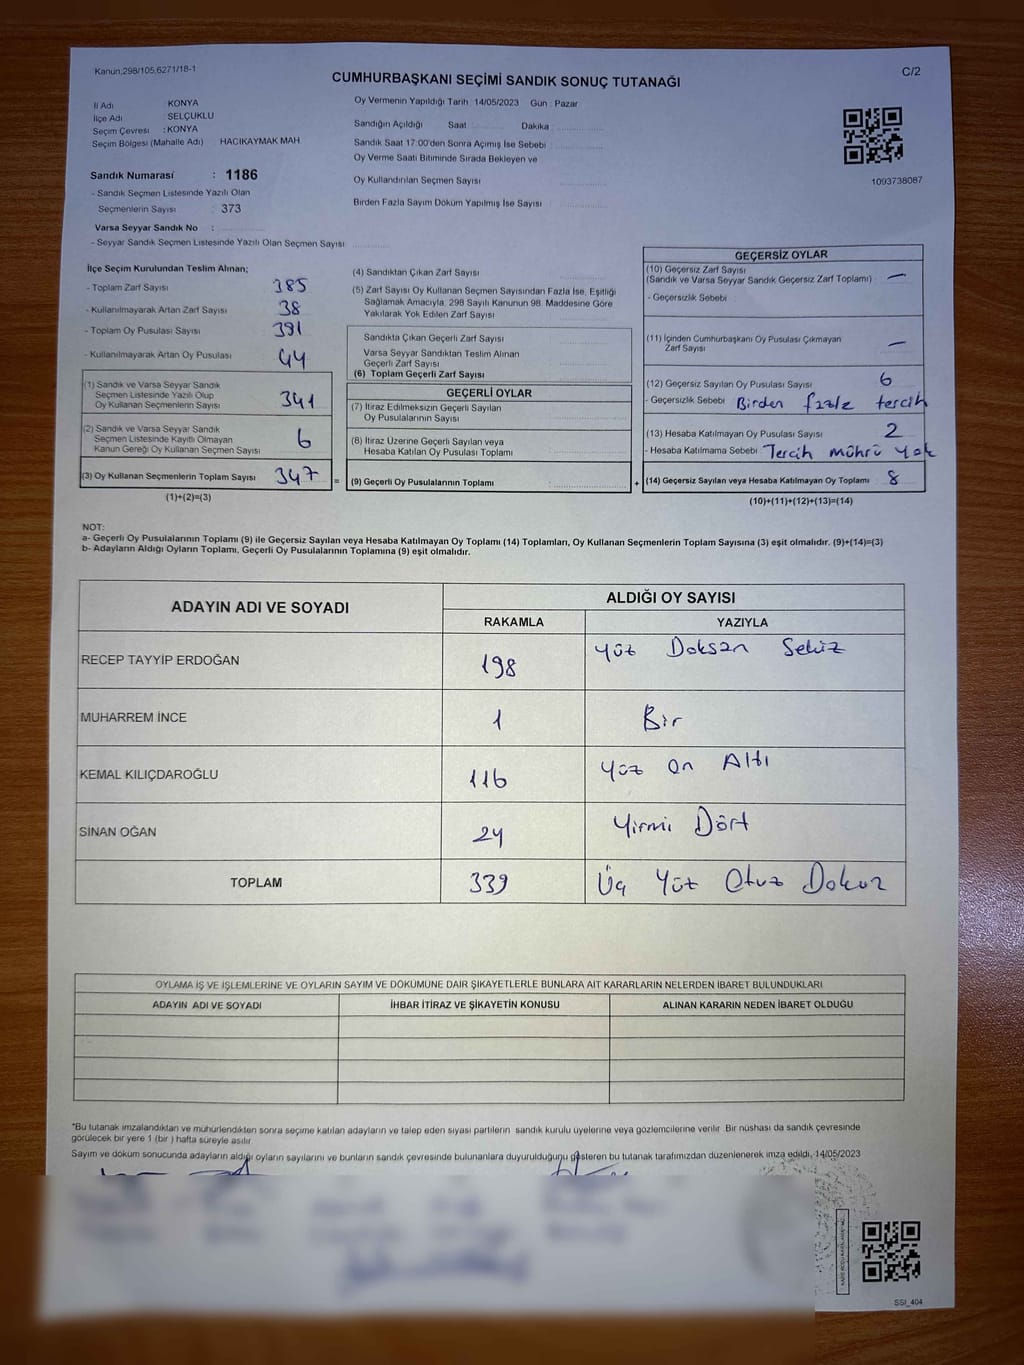 Kanun,298/105,6271/18-1
C/2
CUMHURBAŞKANI SEÇİMİ SANDIK SONUÇ TUTANAĞI
İl Adı KONYA
İlçe Adı : SELÇUKLU
Seçim Çevresi : KONYA
Seçim Bölgesi (Mahalle Adı) HACIKAYMAK MAH
Sandık Numarası : 1186
- Sandık Seçmen Listesinde Yazılı Olan
Seçmenlerin Sayısı : 373
Varsa Seyyar Sandık No :
- Seyyar Sandık Seçmen Listesinde Yazılı Olan Seçmen Sayısı
Oy Vermenin Yapıldığı Tarih : 14/05/2023 Gün : Pazar
Sandığın Açıldığı Saat Dakika
Sandık Saat 17:00'den Sonra Açımış İse Sebebi
Oy Verme Saati Bitiminde Sırada Bekleyen ve
Oy Kullandırılan Seçmen Sayısı
Birden Fazla Sayım Döküm Yapılmış İse Sayısı
1093738087
İlçe Seçim Kurulundan Teslim Alınan;
- Toplam Zarf Sayısı 385
- Kullanılmayarak Artan Zarf Sayısı 38
- Toplam Oy Pusulası Sayısı 391
- Kullanılmayarak Artan Oy Pusulası 44
(1) Sandık ve Varsa Seyyar Sandık
Seçmen Listesinde Yazılı Olup
Oy Kullanan Seçmenlerin Sayısı 341
(2) Sandık ve Varsa Seyyar Sandık
Seçmen Listesinde Kayıtlı Olmayan
Kanun Gereği Oy Kullanan Seçmen Sayısı 6
(3) Oy Kullanan Seçmenlerin Toplam Sayısı 347 =
(1)+(2)=(3)
(4) Sandıktan Çıkan Zarf Sayısı
(5) Zarf Sayısı Oy Kullanan Seçmen Sayısından Fazla İse, Eşitliği
Sağlamak Amacıyla, 298 Sayılı Kanunun 98. Maddesine Göre
Yakılarak Yok Edilen Zarf Sayısı
Sandıkta Çıkan Geçerli Zarf Sayısı
Varsa Seyyar Sandıktan Teslim Alınan
Geçerli Zarf Sayısı
(6) Toplam Geçerli Zarf Sayısı
GEÇERLİ OYLAR
(7) İtiraz Edilmeksizin Geçerli Sayılan
Oy Pusulalarının Sayısı
(8) İtiraz Üzerine Geçerli Sayılan veya
Hesaba Katılan Oy Pusulası Toplamı
(9) Geçerli Oy Pusulalarının Toplamı +
GEÇERSİZ OYLAR
(10) Geçersiz Zarf Sayısı
(Sandık ve Varsa Seyyar Sandık Geçersiz Zarf Toplamı) —
- Geçersizlik Sebebi
(11) İçinden Cumhurbaşkanı Oy Pusulası Çıkmayan
Zarf Sayısı —
(12) Geçersiz Sayılan Oy Pusulası Sayısı 6
- Geçersizlik Sebebi Birden fazla tercih
(13) Hesaba Katılmayan Oy Pusulası Sayısı 2
- Hesaba Katılmama Sebebi Tercih mührü yok
(14) Geçersiz Sayılan veya Hesaba Katılmayan Oy Toplamı 8
(10)+(11)+(12)+(13)=(14)
NOT:
a- Geçerli Oy Pusulalarının Toplamı (9) ile Geçersiz Sayılan veya Hesaba Katılmayan Oy Toplamı (14) Toplamları, Oy Kullanan Seçmenlerin Toplam Sayısına (3) eşit olmalıdır. (9)+(14)=(3)
b- Adayların Aldığı Oyların Toplamı, Geçerli Oy Pusulalarının Toplamına (9) eşit olmalıdır.
ADAYIN ADI VE SOYADI ALDIĞI OY SAYISI
RAKAMLA YAZIYLA
RECEP TAYYİP ERDOĞAN 198 Yüz Doksan Sekiz
MUHARREM İNCE 1 Bir
KEMAL KILIÇDAROĞLU 116 Yüz On Altı
SİNAN OĞAN 24 Yirmi Dört
TOPLAM 339 Üç Yüz Otuz Dokuz
OYLAMA İŞ VE İŞLEMLERİNE VE OYLARIN SAYIM VE DÖKÜMÜNE DAİR ŞİKAYETLERLE BUNLARA AİT KARARLARIN NELERDEN İBARET BULUNDUKLARI
ADAYIN ADI VE SOYADI İHBAR İTİRAZ VE ŞİKAYETİN KONUSU ALINAN KARARIN NEDEN İBARET OLDUĞU
*Bu tutanak imzalandıktan ve mühürlendikten sonra seçime katılan adayların ve talep eden siyasi partilerin sandık kurulu üyelerine veya gözlemcilerine verilir. Bir nüshası da sandık çevresinde
görülecek bir yere 1 (bir ) hafta süreyle asılır.
Sayım ve döküm sonucunda adayların aldığı oyların sayılarını ve bunların sandık çevresinde bulunanlara duyurulduğunu gösteren bu tutanak tarafımızdan düzenlenerek imza edildi. 14/05/2023
SSI_404